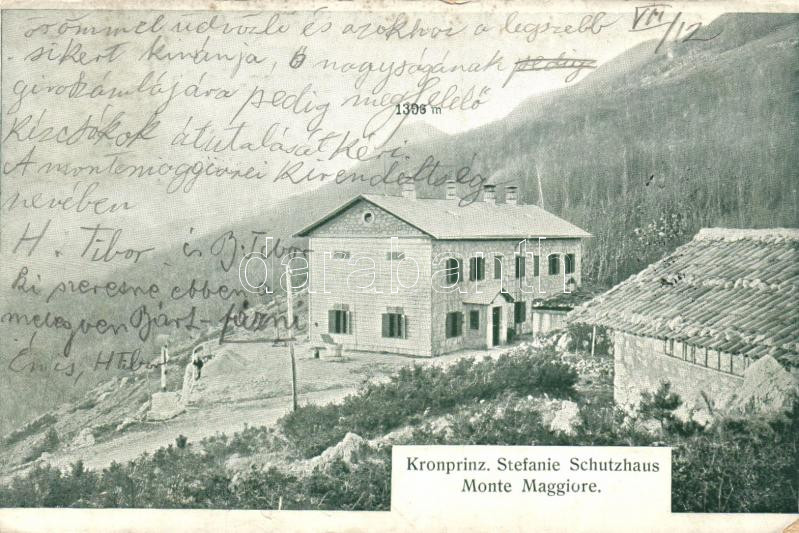 örömmel üdvözli és azokhoz a legszebb
sikert kivánja, ő nagyságának pedig
girokzámlájára pedig megfelelő
kézcsókok átutalását kéri
A montemaggiorei kirendeltség
nevében
H. Tibor és B. Tibor
ki szeretne ebben
melegven
H Tibor
VII/12
1396 m
darabanth
Kronprinz. Stefanie Schutzhaus
Monte Maggiore.